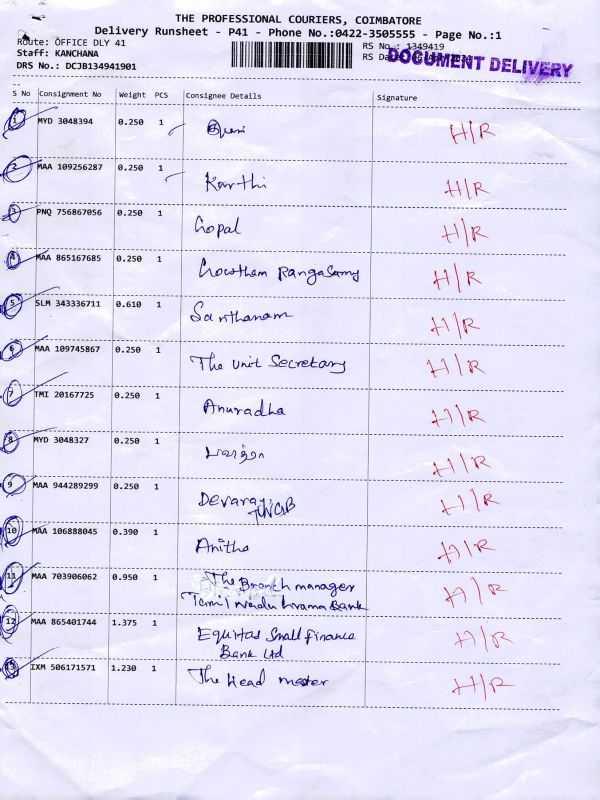 THE PROFESSIONAL COURIERS, COIMBATORE
Delivery Runsheet - P41 - Phone No.:0422-3505555 - Page No.:1
Route: OFFICE DLY 41
RS No.: 1349419
Staff: KANCHANA
RS Da
DOCUMENT DELIVERY
DRS No.: DCJB134941901
S No Consignment No Weight PCS Consignee Details Signature
1 MYD 3048394 0.250 1 H/R
2 MAA 109256287 0.250 1 Karthi H/R
3 PNQ 756867056 0.250 1 Gopal H/R
4 MAA 865167685 0.250 1 Gowtham Rangasamy H/R
5 SLM 343336711 0.610 1 Santhanam H/R
6 MAA 109745867 0.250 1 The unit Secretary H/R
7 TMI 20167725 0.250 1 Anuradha H/R
8 MYD 3048327 0.250 1 H/R
9 MAA 944289299 0.250 1 Devaraj H/R
TNGB
10 MAA 106888045 0.390 1 Anitha H/R
11 MAA 703906062 0.950 1 The Branch manager H/R
Tamil Nadu Grama Bank
12 MAA 865401744 1.375 1 Equitas Small finance H/R
Bank Ltd
13 IXM 506171571 1.230 1 The Head master H/R